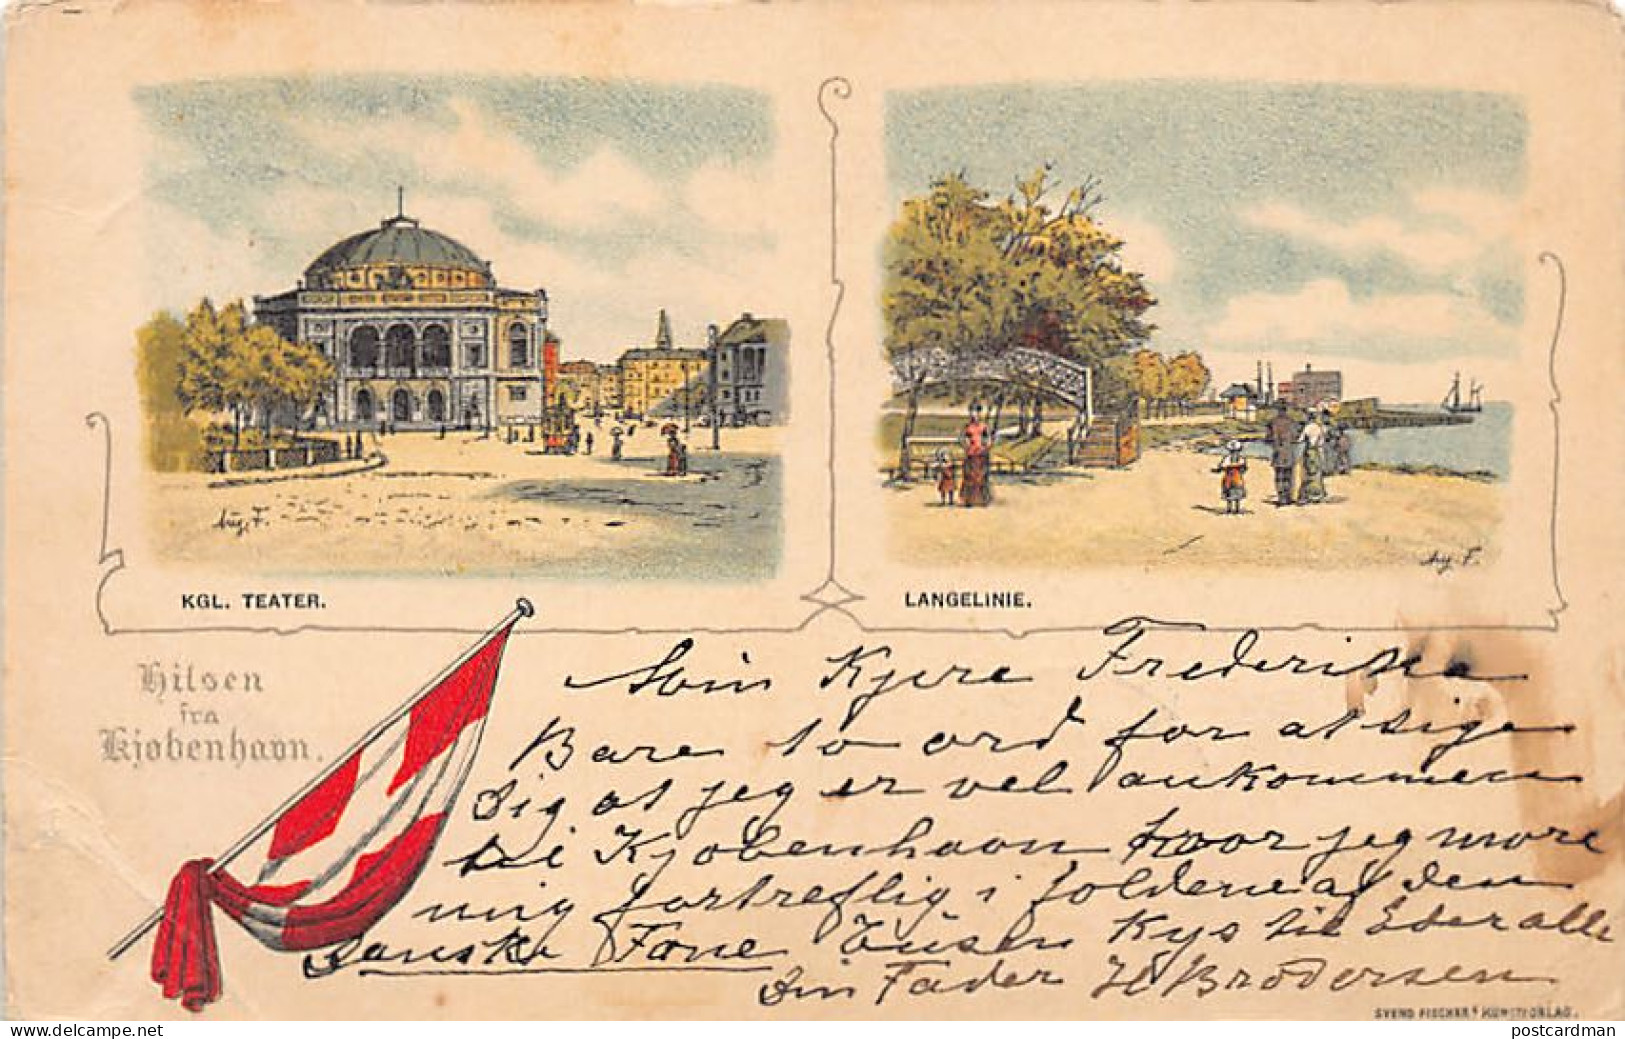 Aug. F.
Aug. F.
KGL. TEATER.
LANGELINIE.
Hilsen
fra
Kjøbenhavn.
Min Kjære Frederikke
Bare to ord for at sige
Dig at jeg er vel ankommen
til Kjøbenhavn hvor jeg more
mig fortreflig i foldene af den
Danske Fane Tusen Kys til Eder alle
Din Fader H Brodersen
SVEND FISCHERS KUNSTFORLAG.
postcardman
delcampe.net